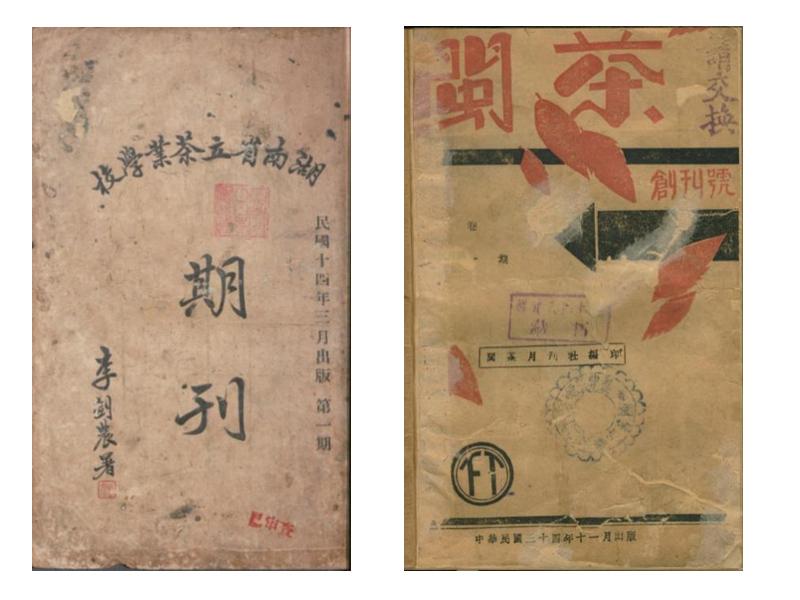 湖南省立茶業學校
期刊
民國十四年三月出版 第一期
李劍農署
閩茶
請交換
創刊號
卷 期
閩茶月刊社編印
FT
中華民國三十四年十一月出版